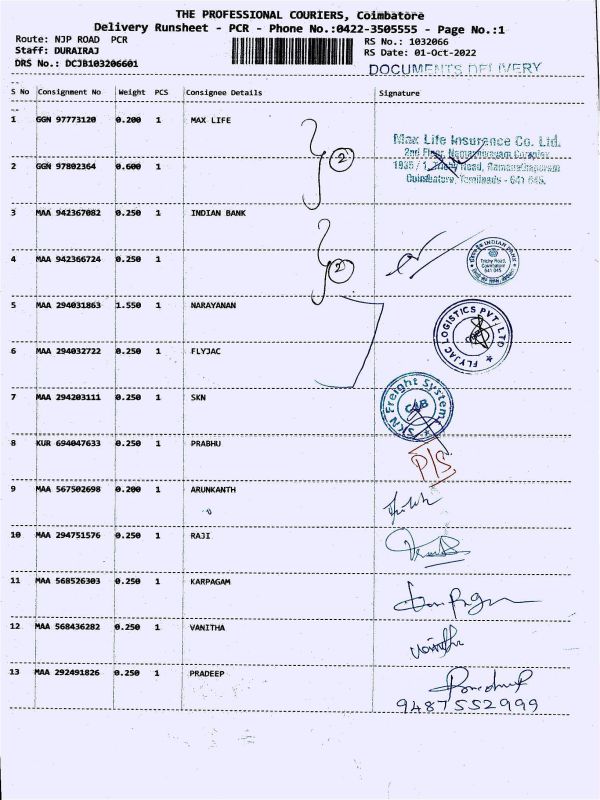 THE PROFESSIONAL COURIERS, Coimbatore
Delivery Runsheet - PCR - Phone No.:0422-3505555 - Page No.:1
Route: NJP ROAD PCR
Staff: DURAIRAJ
DRS No.: DCJB103206601
RS No.: 1032066
RS Date: 01-Oct-2022
DOCUMENTS DELIVERY
S No Consignment No Weight PCS Consignee Details Signature
1 GGN 97773120 0.200 1 MAX LIFE
2
Max Life Insurance Co. Ltd.
2nd Floor, Complex
1935 / 1, Trichy Road, Ramanathapuram
Coimbatore, Tamilnadu - 641 045.
2 GGN 97802364 0.600 1
3 MAA 942367082 0.250 1 INDIAN BANK
2
INDIAN BANK
Trichy Road,
Coimbatore
641 045
4 MAA 942366724 0.250 1
5 MAA 294031863 1.550 1 NARAYANAN
FLYJAC LOGISTICS PVT. LTD
6 MAA 294032722 0.250 1 FLYJAC
7 MAA 294203111 0.250 1 SKN
SKN Freight Systems
CJB
8 KUR 694047633 0.250 1 PRABHU
P/S
9 MAA 567502698 0.200 1 ARUNKANTH
10 MAA 294751576 0.250 1 RAJI
11 MAA 568526303 0.250 1 KARPAGAM
12 MAA 568436282 0.250 1 VANITHA
Vanitha
13 MAA 292491826 0.250 1 PRADEEP
9487552999